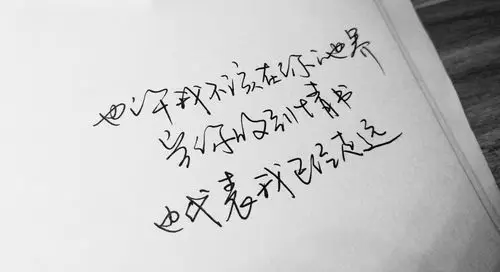 也许我不该在你的世界
当你收到情书
也代表我已经走远